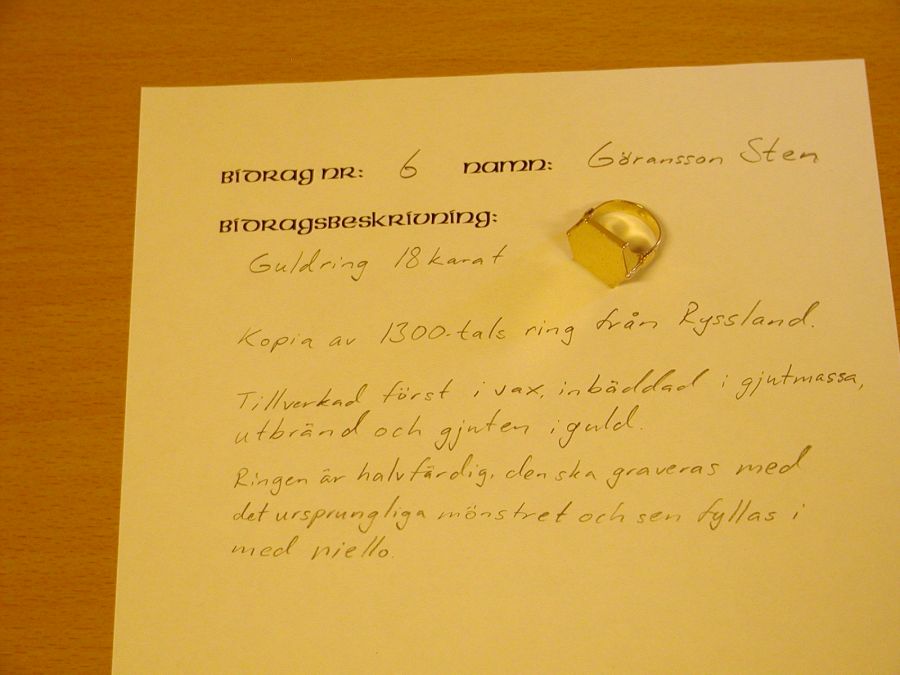 Bidrag nr: 6 namn: Göransson Sten
Bidragsbeskrivning:
Guldring 18 karat
Kopia av 1300-tals ring från Ryssland.
Tillverkad först i vax, inbäddad i gjutmassa,
utbränd och gjuten i guld.
Ringen är halvfärdig, den ska graveras med
det ursprungliga mönstret och sen fyllas i
med niello.